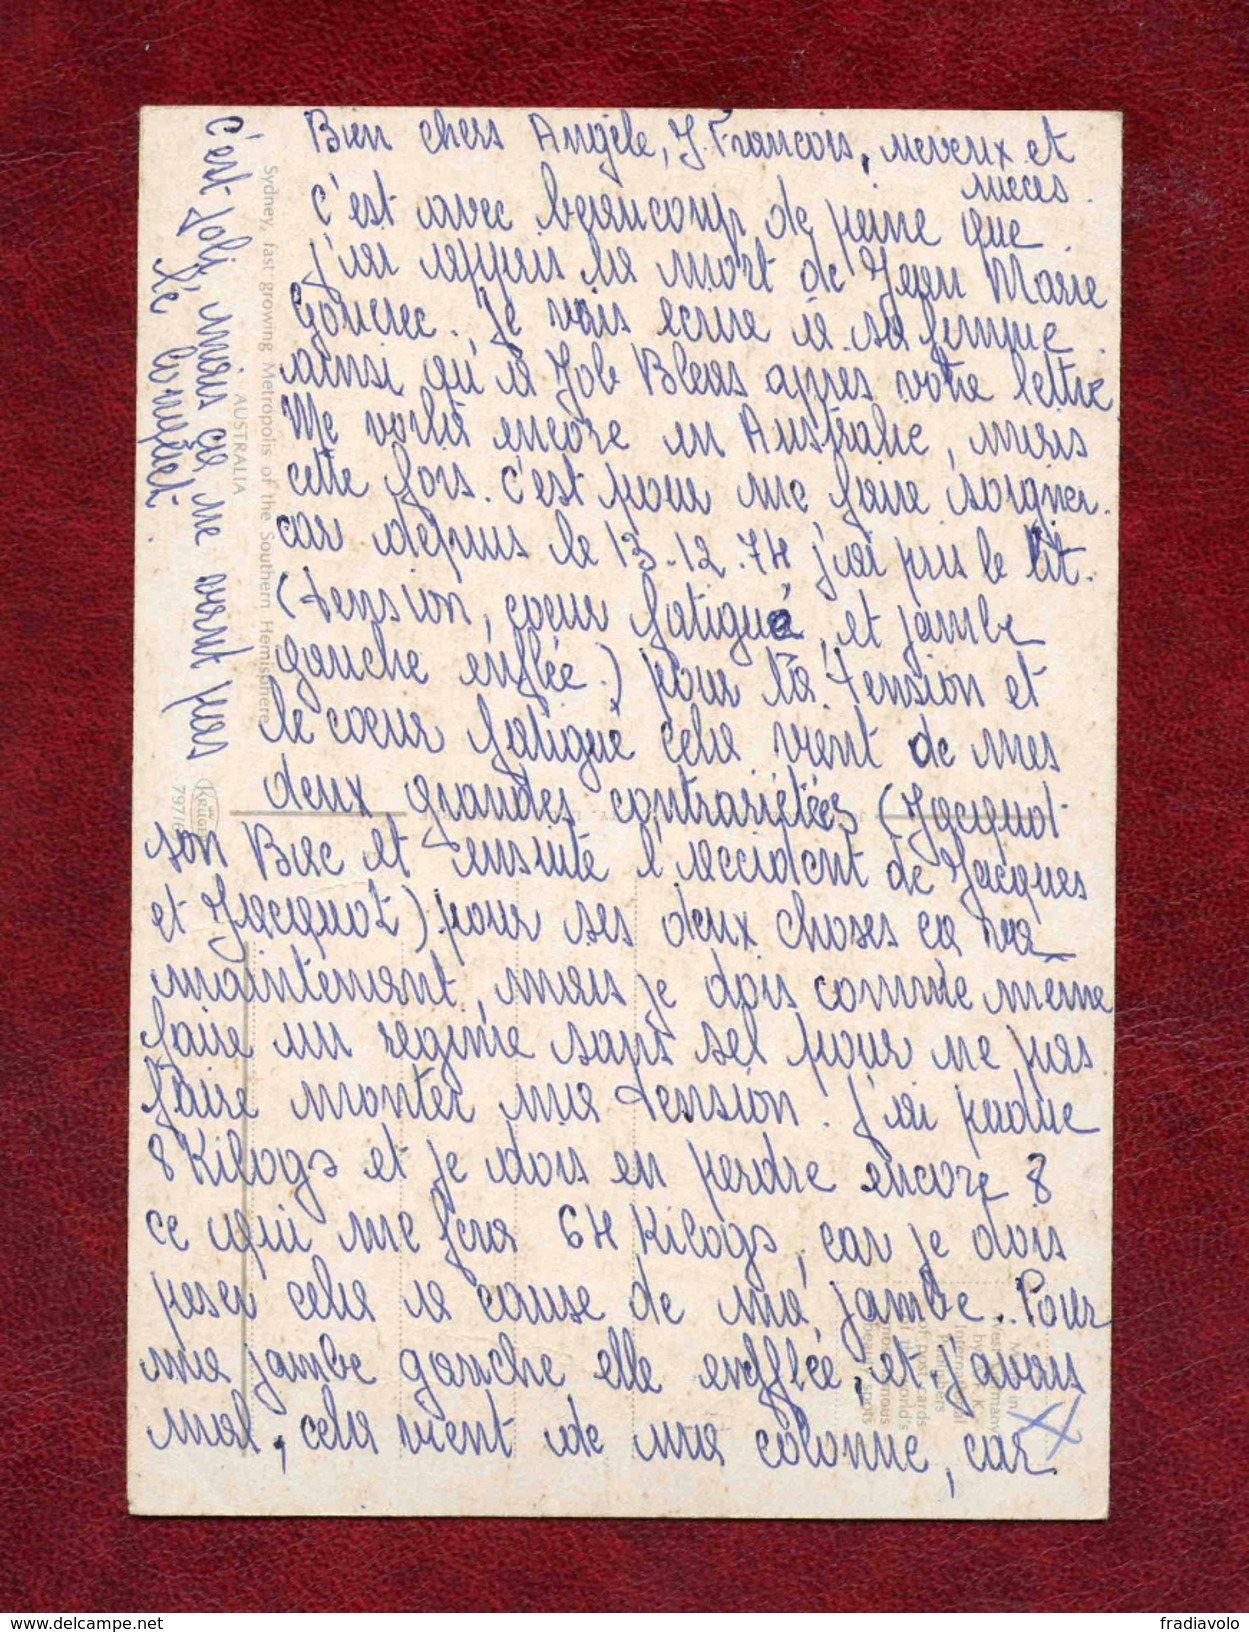 Bien chers Angèle, J. François, neveux et
nièces.
C'est avec beaucoup de peine que
j'ai appris la mort de Jean Marie
. Je vais écrire à sa femme
ainsi qu'à Job Bleas apres votre lettre
Me voilà encore en Australie, mais
cette fois. c'est pour me faire soigner.
car depuis le 13.12.74 j'ai pris le lit.
(tension, coeur fatigué, et jambe
gauche enflée.) pour la tension et
le coeur fatigué cela vient de mes
deux grandes contrariétées (Jacquot
son Bac et ensuite l'accident de Jacques
et Jacquot) pour ses deux choses ca va
maintenant, mais je dois comme même
faire un regime sans sel pour ne pas
faire monter ma tension. J'ai perdue
8 Kilogs et je dois en perdre encore 8
ce qui me fera 64 Kilogs, car je dois
peser cela a cause de ma jambe. Pour
ma jambe gauche elle enfflée, et j'avais
mal, cela vient de ma colonne, car
X
c'est joli, mais ca ne vaut pas
Le Conquet.
Sydney, fast growing Metropolis of the Southern Hemisphere
AUSTRALIA
delcampe.net
fradiavolo